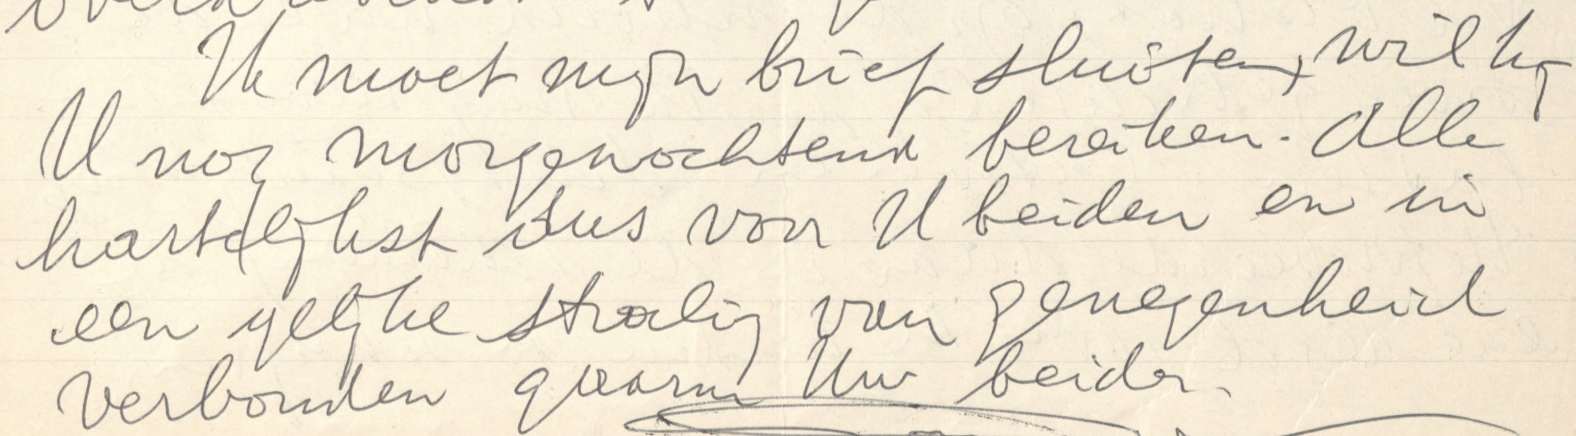 Ik moet mijn brief sluiten, wil hij
U nog morgenochtend bereiken. Alle
hartelijkst dus voor U beiden en in
een gelijke straling van genegenheid
verbonden gaarne Uw beider.